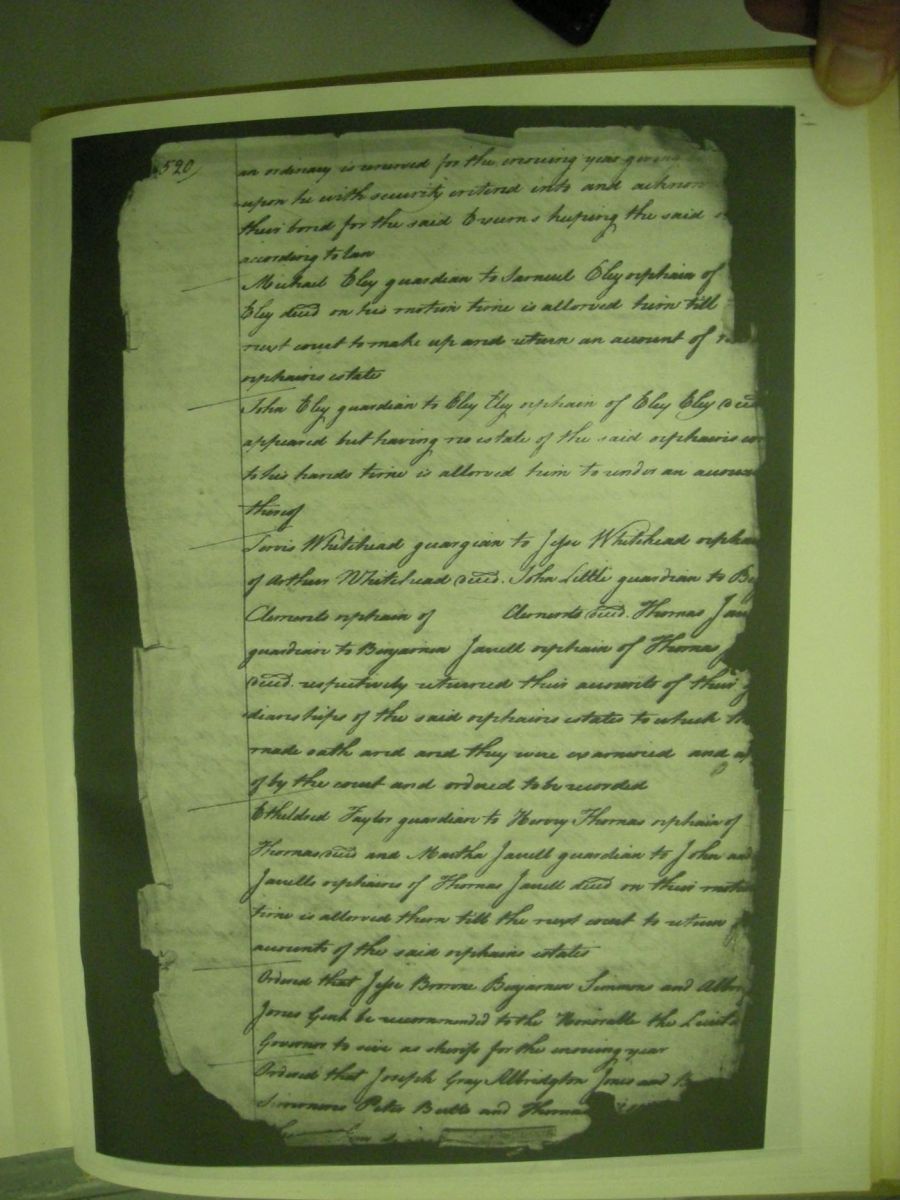 520
an ordinary is renewed for the ensuing year giving
upon he with security entered into and acknow
their bond for the said keeping the said
according to law
Michael Eley guardian to Samuel Eley orphain of
Eley deced on his motion time is allowed him till
next court to make up and return an account of
orphains estate
John Eley guardian to Eley Eley orphain of Eley Eley deced
appeared but having no estate of the said orphains
to his hands time is allowed him to render an
thereof
Whitehead guargian to Jesse Whitehead
of Arthur Whitehead deced. John Little guardian to
Clements orphain of Clements deced. Thomas
guardian to Benjamin Jarrell orphain of Thomas
deced. respectively returned their accounts of their
dianships of the said orphains estates to which
made oath and and they were examined and
of by the court and ordered to be recorded
Etheldred Taylor guardian to Henry Thomas orphain of
Thomas deced and Martha Jarrell guardian to John and
Jarrells orphains of Thomas Jarrell deced on their
time is allowed them till the next court to return
accounts of the said orphains estates
Ordered that Jesse Browne Benjamin Simmons and
Jones Gent be recommended to the Honorable the
Governor to serve as sheriff for the ensuing year
Ordered that Joseph Gray Albridgton Jones and
Simmons Peter Butts and Thomas